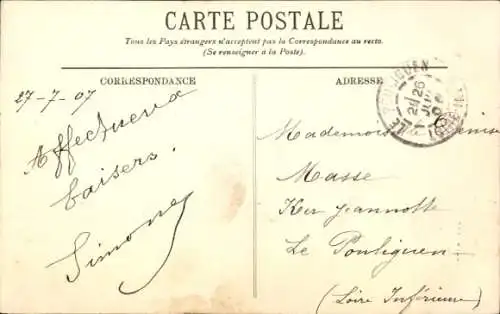 CARTE POSTALE
Tous les Pays étrangers n'acceptent pas la Correspondance au recto.
(Se renseigner à la Poste).
CORRESPONDANCE
ADRESSE
27-7-07
Affectueux
baisers.
Simone
LE POULIGUEN
26
Mademoiselle Denise
Masse
Ker Jeannotte
Le Pouliguen
(Loire Inférieure)